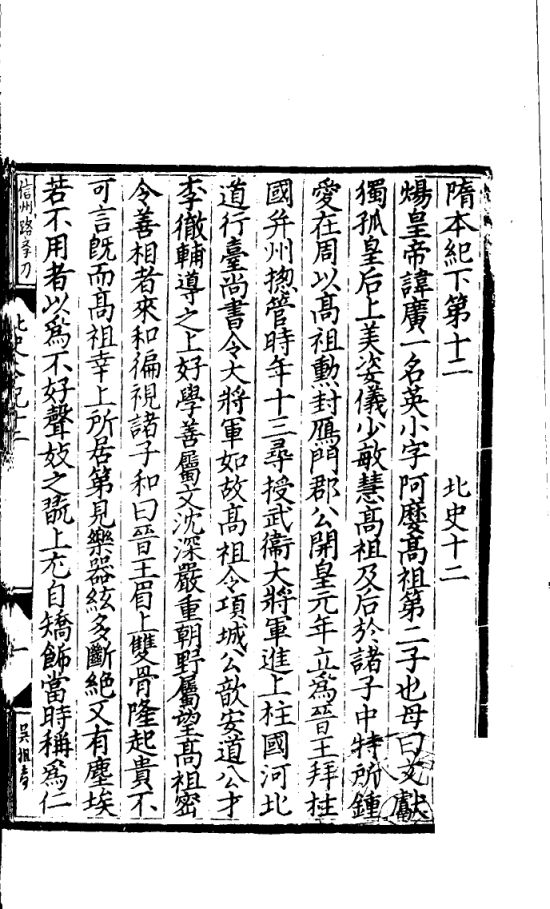 隋本紀下第十二　北史十二
煬皇帝諱廣一名英小字阿㦄髙祖第二子也母曰文獻
獨孤皇后上美姿儀少敏慧髙祖及后於諸子中特所鍾
愛在周以髙祖勲封鴈門郡公開皇元年立爲晉王拜柱
國并州揔管時年十三尋授武衞大將軍進上柱國河北
道行臺尚書令大將軍如故髙祖令項城公歆安道公才
李徹輔導之上好學善屬文沈深嚴重朝野屬望髙祖密
令善相者來和徧視諸子和曰晉王眉上雙骨隆起貴不
可言旣而髙祖幸上所居第見樂器絃多斷絶又有塵埃
若不用者以爲不好聲妓之翫上尤自矯飾當時稱爲仁
信州路
北史紀十二
一